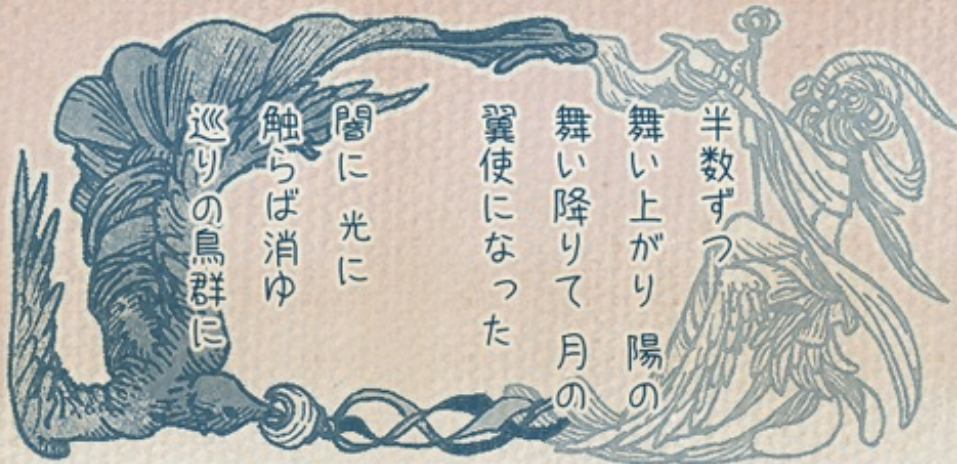 半数ずつ
舞い上がり 陽の
舞い降りて 月の
翼使になった
闇に 光に
触らば消ゆ
巡りの鳥群に